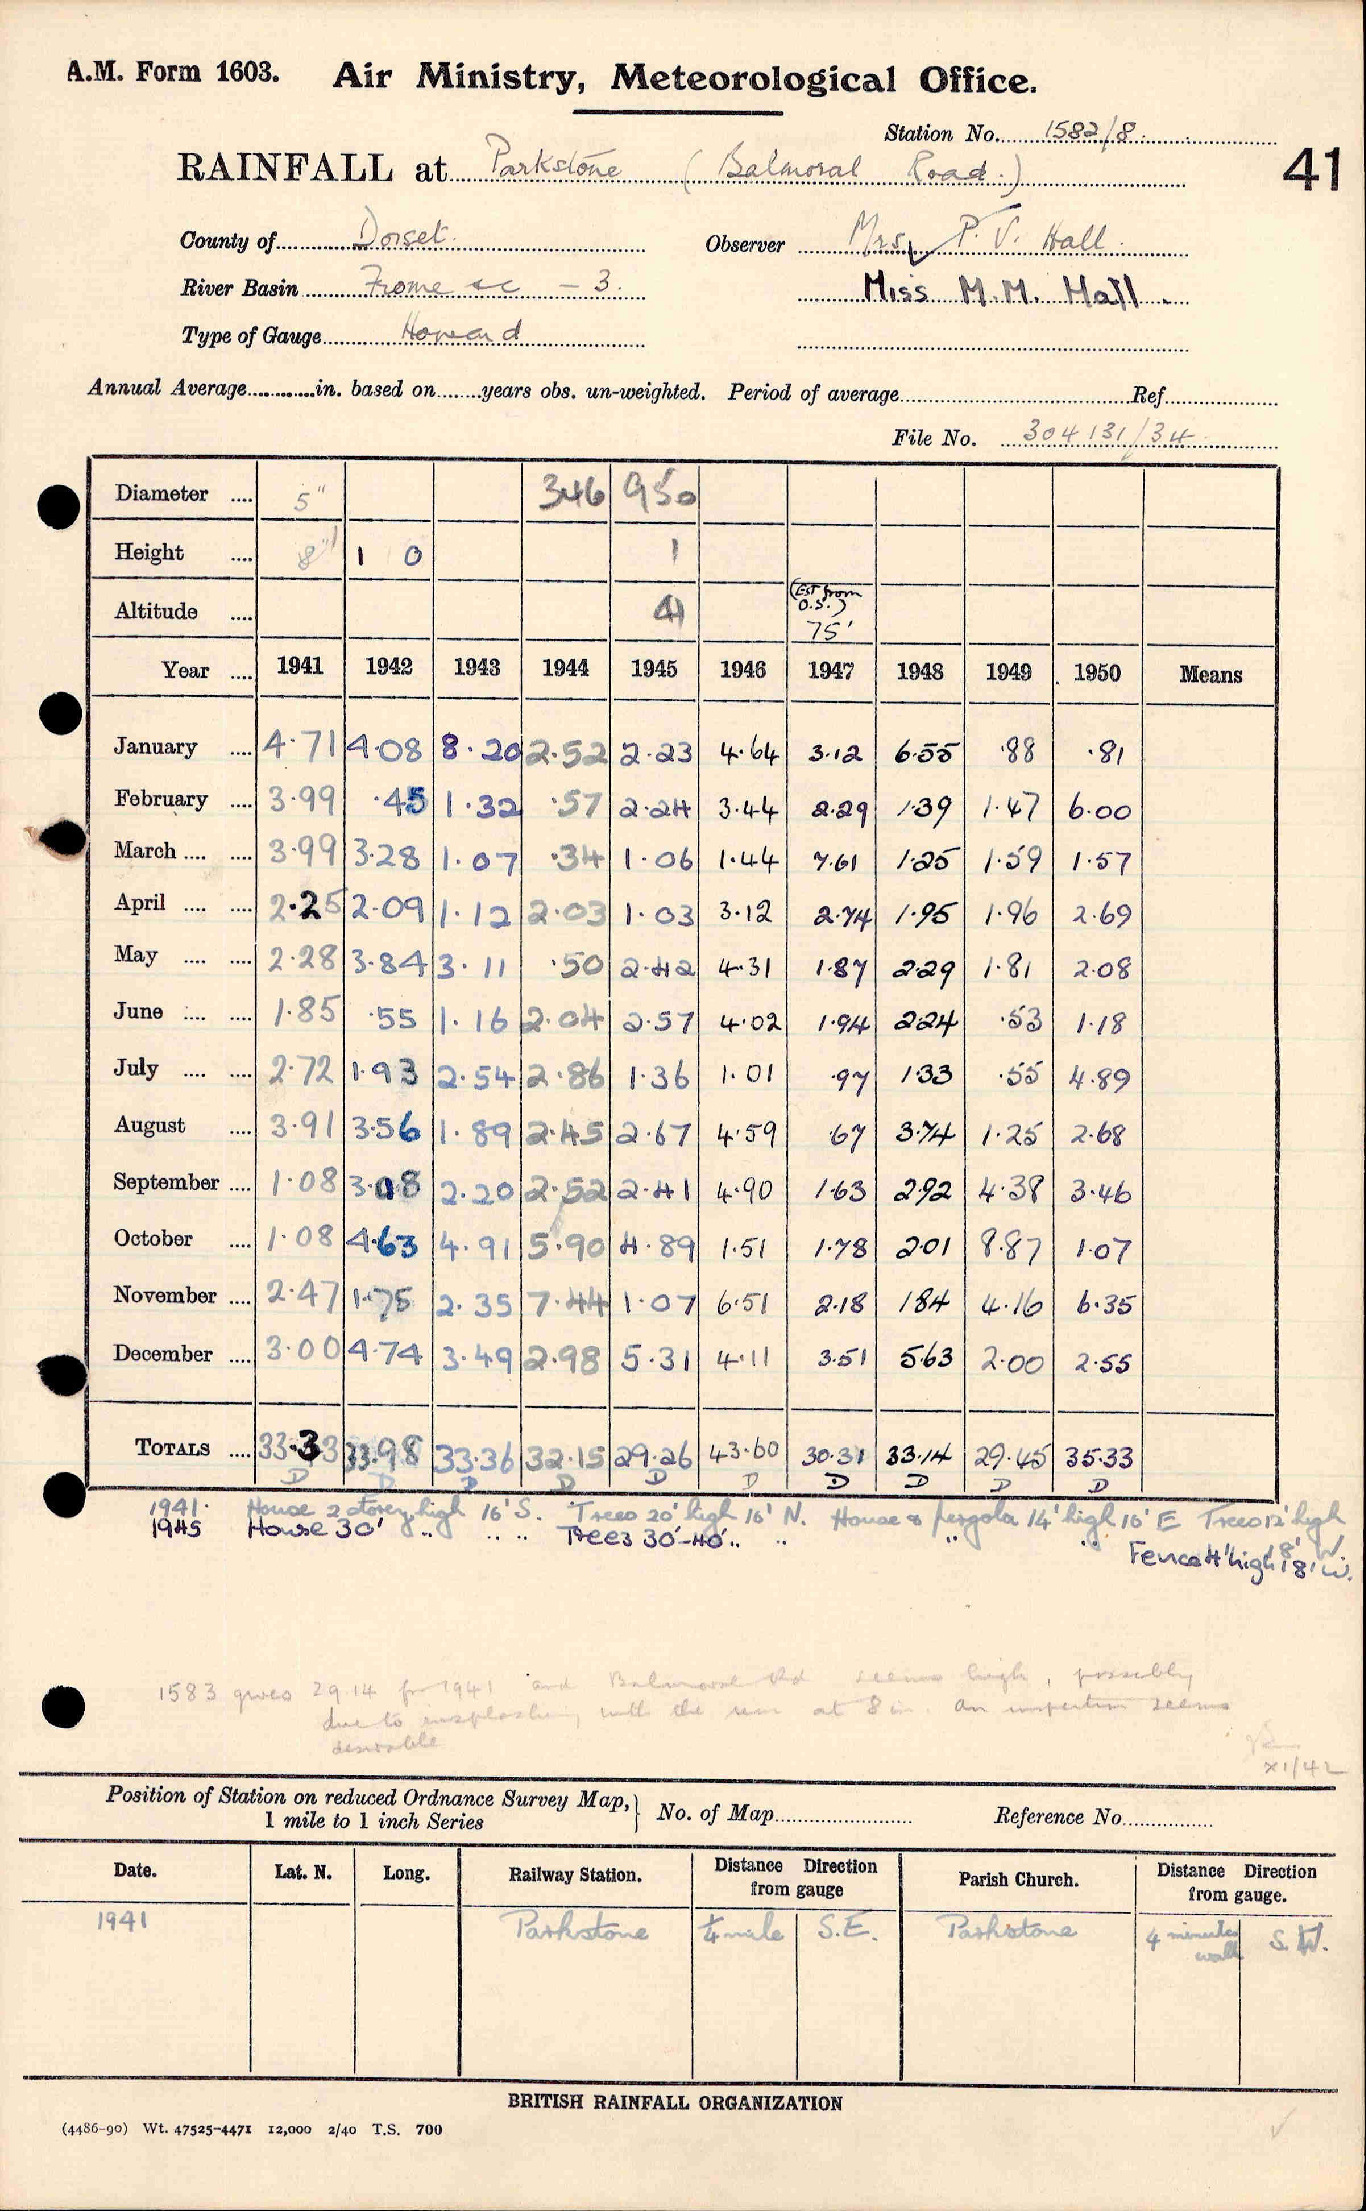 A.M. Form 1603. Air Ministry, Meteorological Office.
Station No. 1582/8
RAINFALL at Parkstone (Balmoral Road.)
41
County of Dorset. Observer Mrs P. V. Hall.
River Basin Frome &c - 3. Miss M.M. Hall.
Type of Gauge Howard
Annual Average in. based on years obs. un-weighted. Period of average Ref
File No. 304131/34
Diameter 5" 346 950
Height 8" 1 0 1
Altitude 41 (Est from O.S.) 75'
Year 1941 1942 1943 1944 1945 1946 1947 1948 1949 1950 Means
January 4.71 4.08 8.20 2.52 2.23 4.64 3.12 6.55 .88 .81
February 3.99 .45 1.32 .57 2.24 3.44 2.29 1.39 1.47 6.00
March 3.99 3.28 1.07 .34 1.06 1.44 7.61 1.25 1.59 1.57
April 2.25 2.09 1.12 2.03 1.03 3.12 2.74 1.95 1.96 2.69
May 2.28 3.84 3.11 .50 2.42 4.31 1.87 2.29 1.81 2.08
June 1.85 .55 1.16 2.04 2.57 4.02 1.94 2.24 .53 1.18
July 2.72 1.93 2.54 2.86 1.36 1.01 .97 1.33 .55 4.89
August 3.91 3.56 1.89 2.45 2.67 4.59 .67 3.74 1.25 2.68
September 1.08 3.08 2.20 2.52 2.41 4.90 1.63 2.92 4.38 3.46
October 1.08 4.63 4.91 5.90 4.89 1.51 1.78 2.01 8.87 1.07
November 2.47 1.75 2.35 7.44 1.07 6.51 2.18 1.84 4.16 6.35
December 3.00 4.74 3.49 2.98 5.31 4.11 3.51 5.63 2.00 2.55
TOTALS 33.33 33.98 33.36 32.15 29.26 43.60 30.31 33.14 29.45 35.33
D D D D D D D D D D
1941. House 2 storey high 16' S. Trees 20' high 16' N. House & pergola 14' high 16' E Trees 12' high 18' W.
1945 House 30' " " " Trees 30'-40' " " " " Fence 4' high 18' W.
1583 gives 29.14 for 1941 and Balmoral Rd seems high, possibly
due to insplashing with the rim at 8 in. An inspection seems
desirable
XI/42
Position of Station on reduced Ordnance Survey Map, 1 mile to 1 inch Series No. of Map Reference No.
Date. Lat. N. Long. Railway Station. Distance Direction from gauge Parish Church. Distance Direction from gauge.
1941 Parkstone ¼ mile S.E. Parkstone 4 minutes walk S.W.
BRITISH RAINFALL ORGANIZATION
(4486-90) Wt. 47525-4471 12,000 2/40 T.S. 700